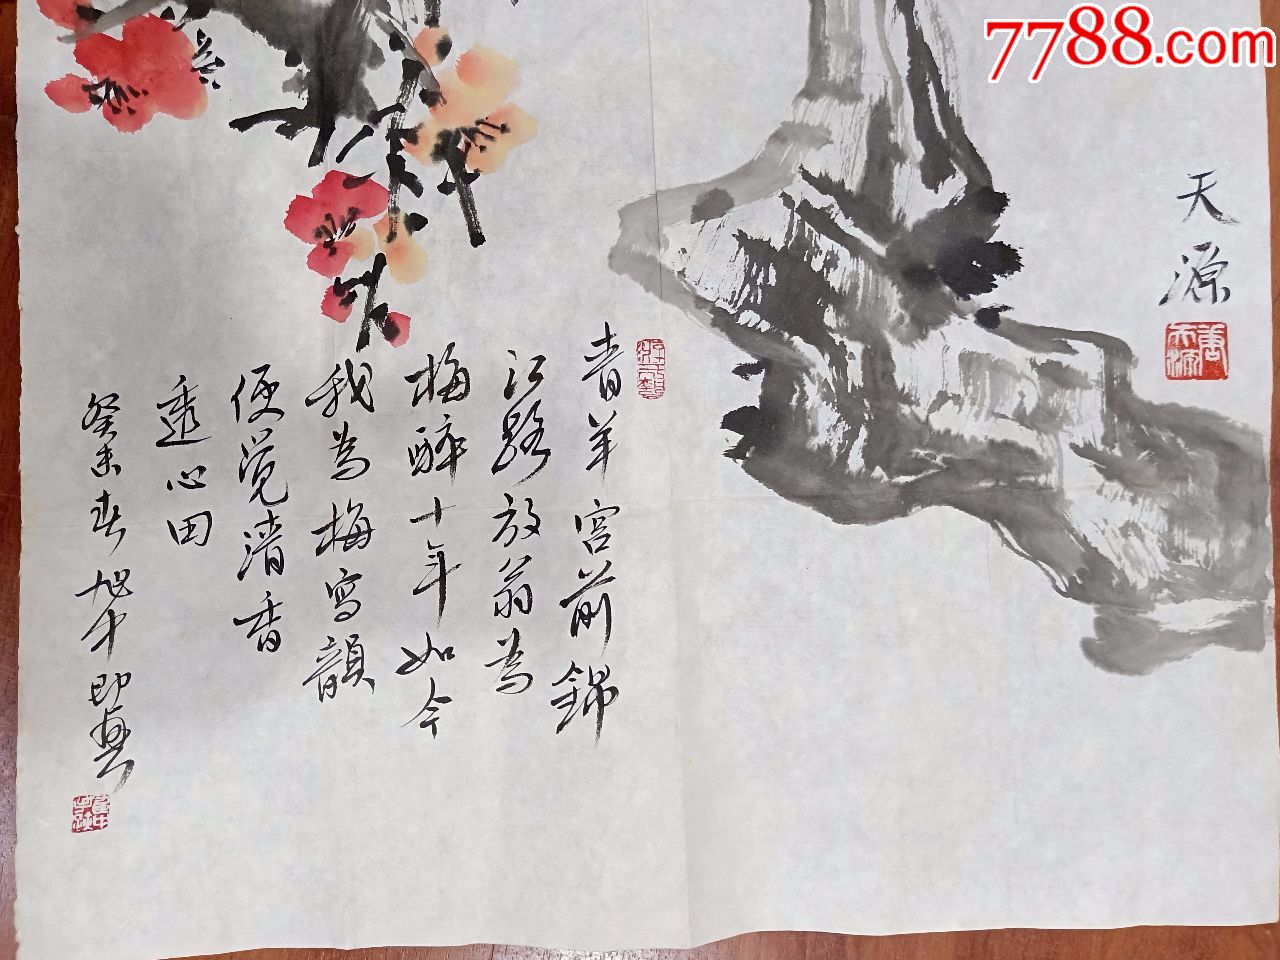 7788.com
天源
青羊宫前錦
江路放翁為
梅醉十年如今
我為梅寫韻
便觉清香
透心田
癸未春旭中即興